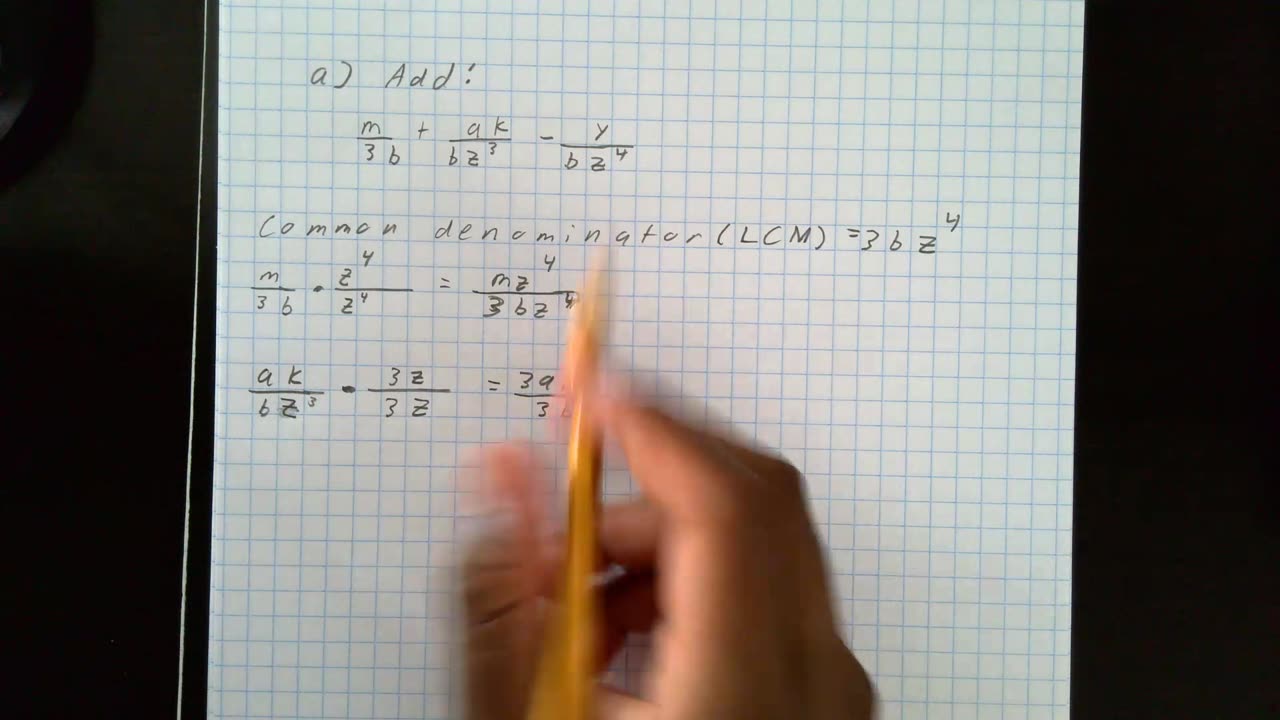 a) Add:
m/3b + ak/bz³ - y/bz⁴
Common denominator (LCM) = 3bz⁴
m/3b · z⁴/z⁴ = mz⁴/3bz⁴
ak/bz³ · 3z/3z = 3a/3